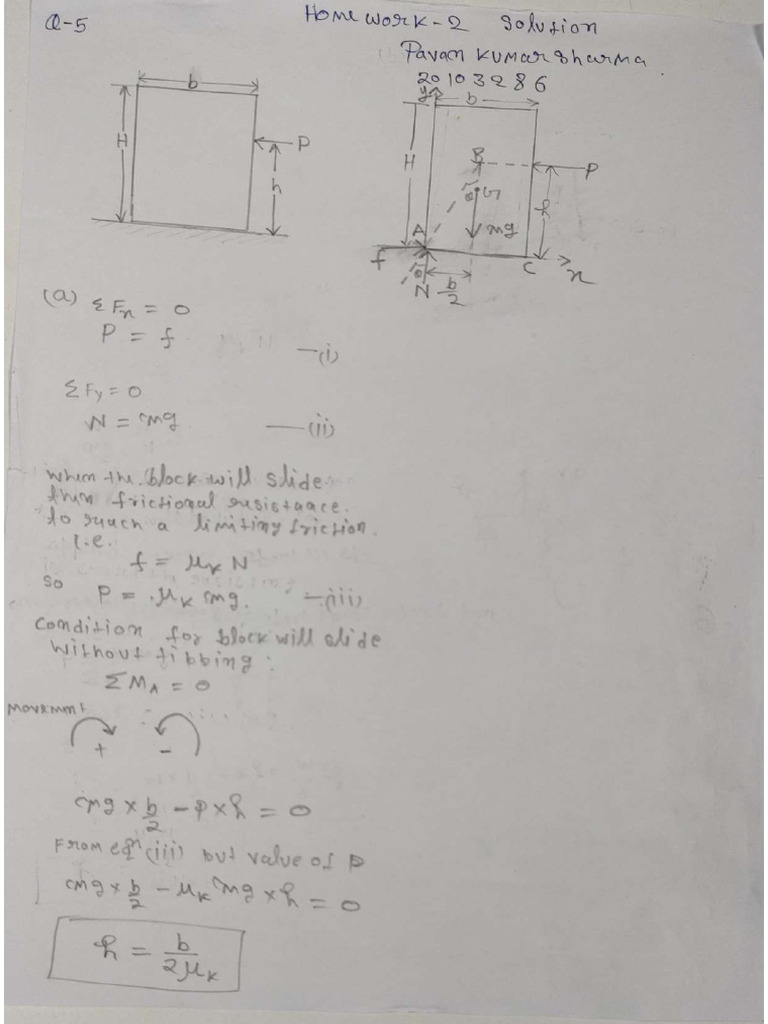 Q-5
Home work-2 Solution
Pavan Kumar Sharma
20103286
b
H
P
h
y
b
H
B
P
θ
G
h
A
mg
f
C
x
θ
N
b/2
(a) ΣFx = 0
P = f —(i)
ΣFy = 0
N = mg —(ii)
when the block will slide
then frictional resistance
to reach a limiting friction.
i.e.
f = μk N
so P = μk mg. —(iii)
Condition for block will slide
without tibbing :
ΣMA = 0
Movemmt
+ -
mg × b/2 - P × h = 0
From eqn (iii) put value of P
mg × b/2 - μk mg × h = 0
h = b/2μk